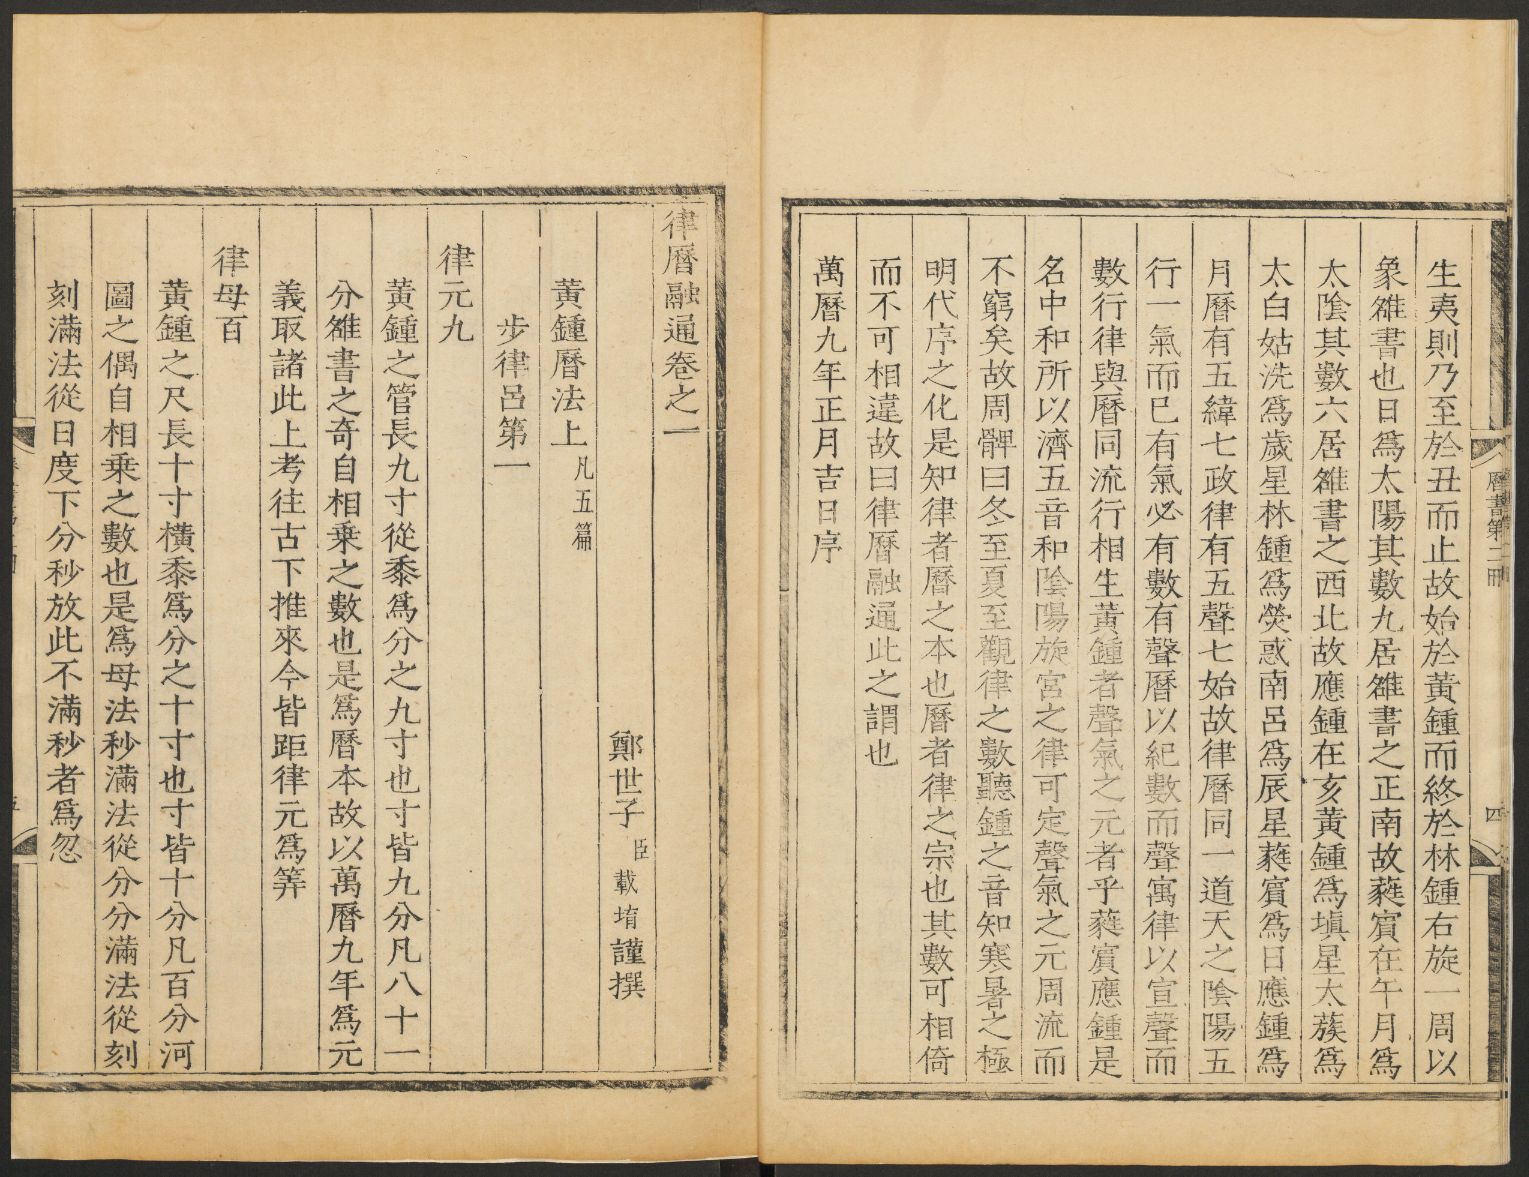 曆書第二冊
四
生夷則乃至於丑而止故始於黃鍾而終於林鍾右旋一周以
象雒書也日爲太陽其數九居雒書之正南故蕤賔在午月爲
太陰其數六居雒書之西北故應鍾在亥黃鍾爲塡星太蔟爲
太白姑洗爲歲星林鍾爲熒惑南呂爲辰星蕤賔爲日應鍾爲
月曆有五緯七政律有五聲七始故律曆同一道天之陰陽五
行一氣而已有氣必有數有聲曆以紀數而聲寓律以宣聲而
數行律與曆同流行相生黃鍾者聲氣之元者乎蕤賔應鍾是
名中和所以濟五音和陰陽旋宮之律可定聲氣之元周流而
不窮矣故周髀曰冬至夏至觀律之數聽鍾之音知寒暑之極
明代序之化是知律者曆之本也曆者律之宗也其數可相倚
而不可相違故曰律曆融通此之謂也
萬曆九年正月吉日序
律曆融通卷之一
鄭世子臣載堉謹撰
黃鍾曆法上凡五篇
步律呂第一
律元九
黃鍾之管長九寸從黍爲分之九寸也寸皆九分凡八十一
分雒書之奇自相乗之數也是爲曆本故以萬曆九年爲元
義取諸此上考往古下推來今皆距律元爲筭
律母百
黃鍾之尺長十寸橫黍爲分之十寸也寸皆十分凡百分河
圖之偶自相乗之數也是爲母法秒滿法從分分滿法從刻
刻滿法從日度下分秒放此不滿秒者爲忽
五